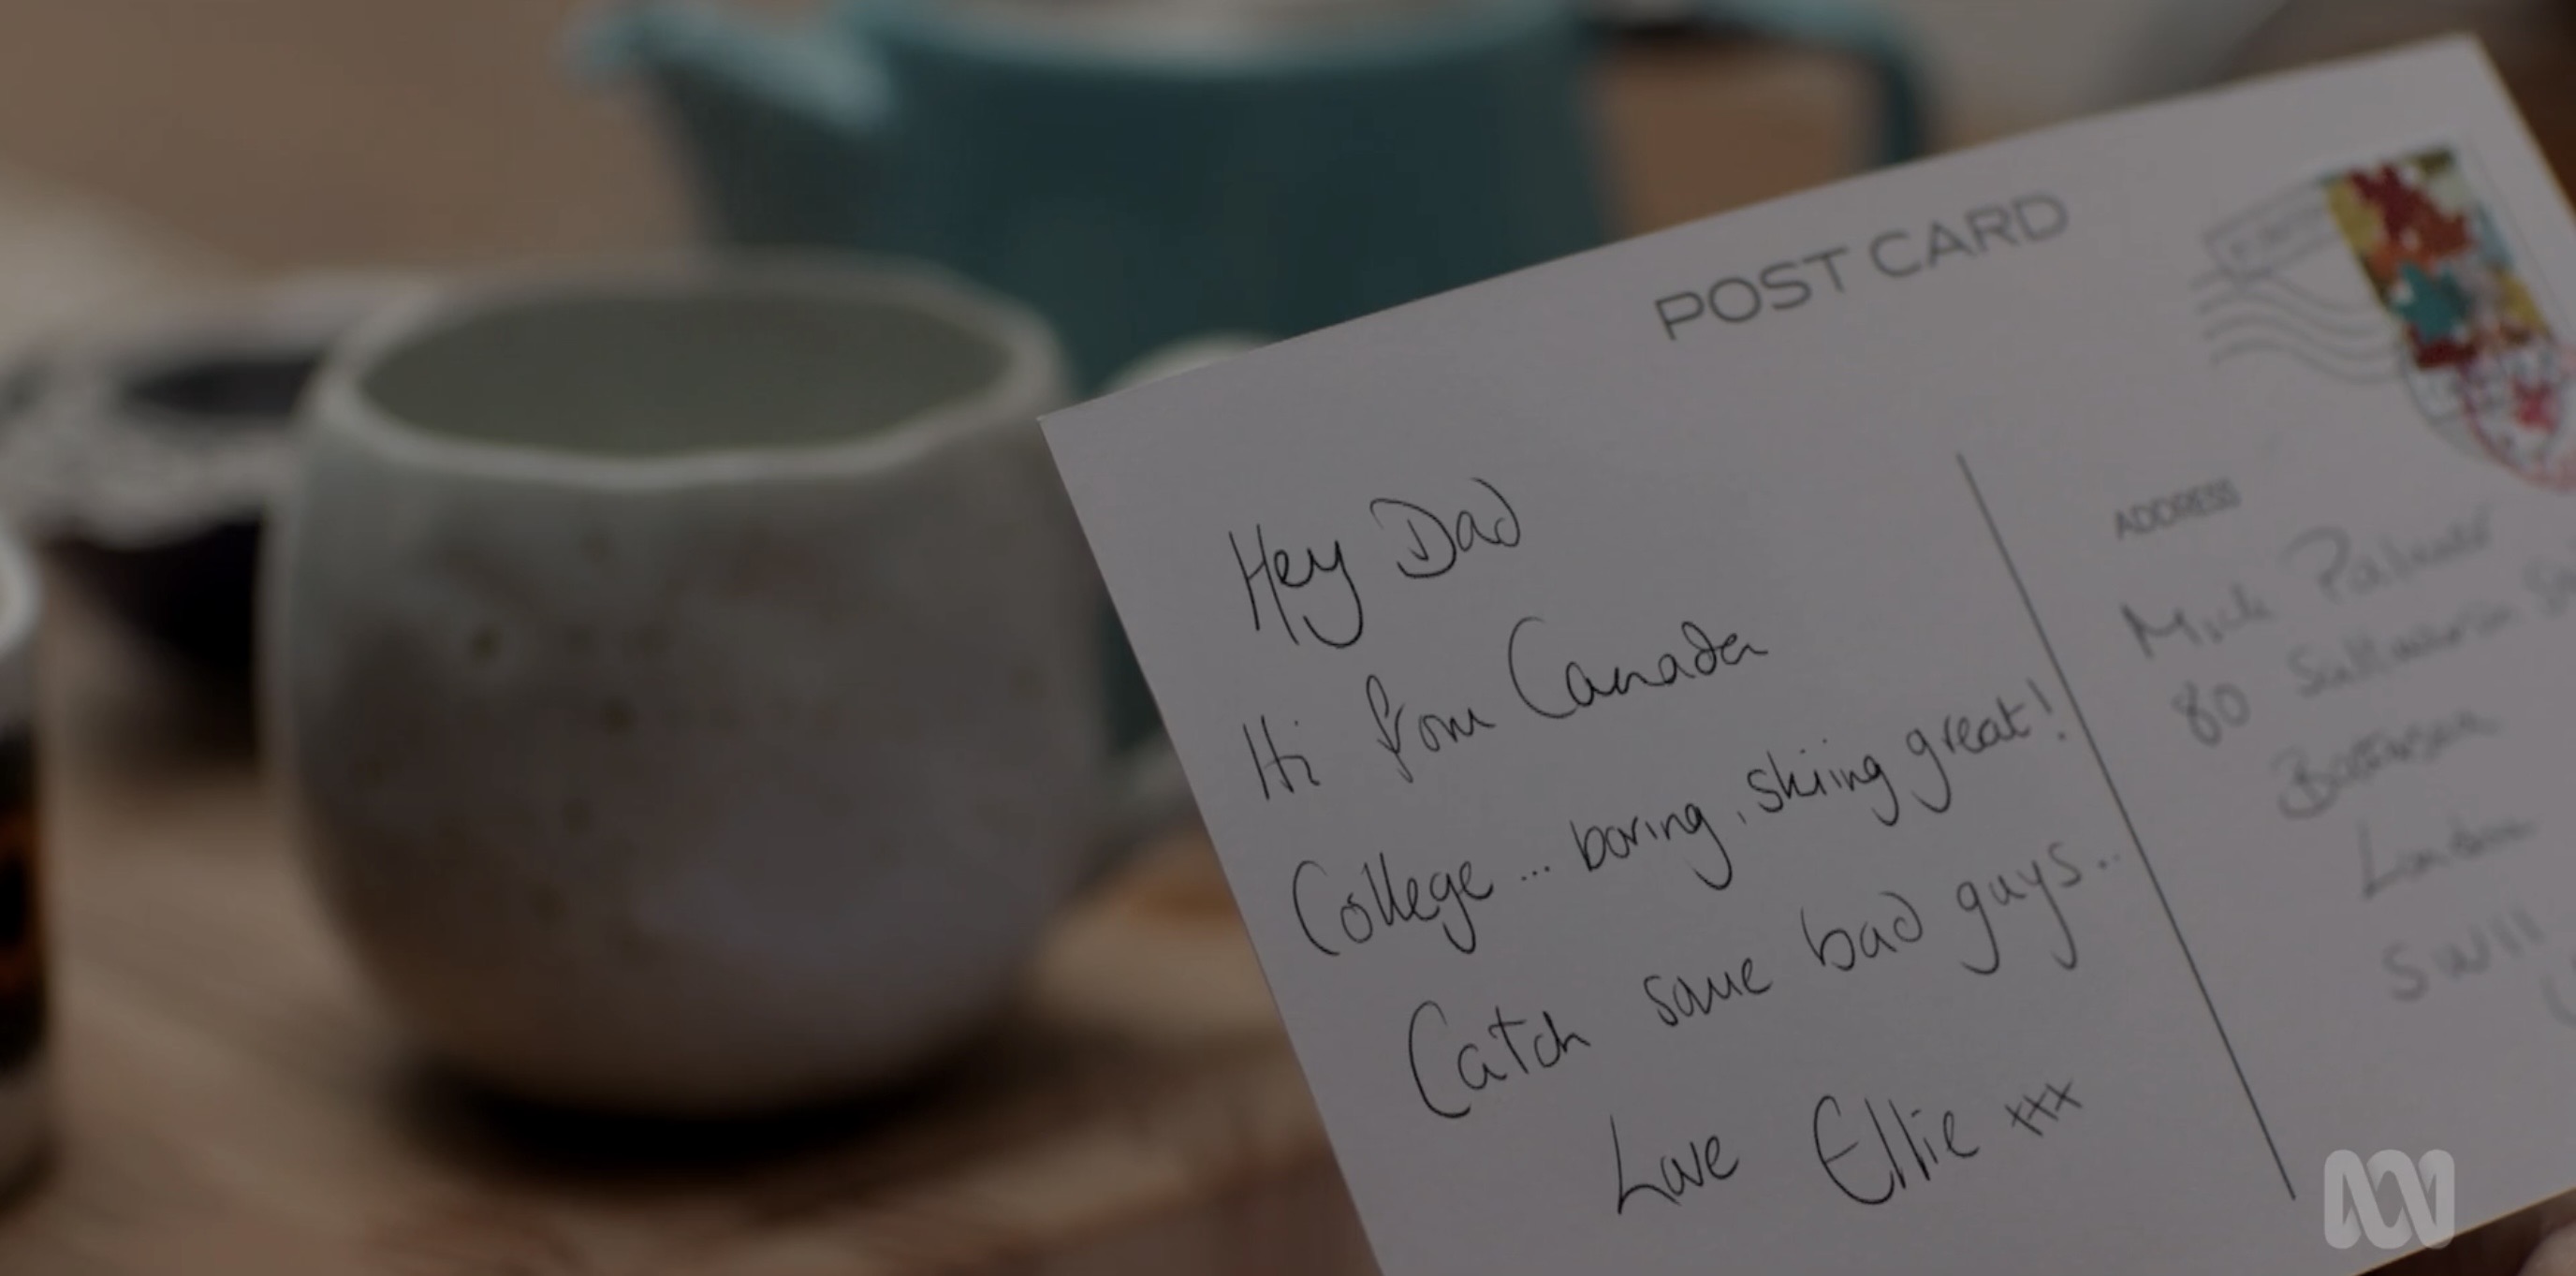 POST CARD
Hey Dad
Hi from Canada
College... boring, skiing great!
Catch some bad guys..
Love Ellie xxx
ADDRESS
Mick Palmer
80
Battersea
London
SW11